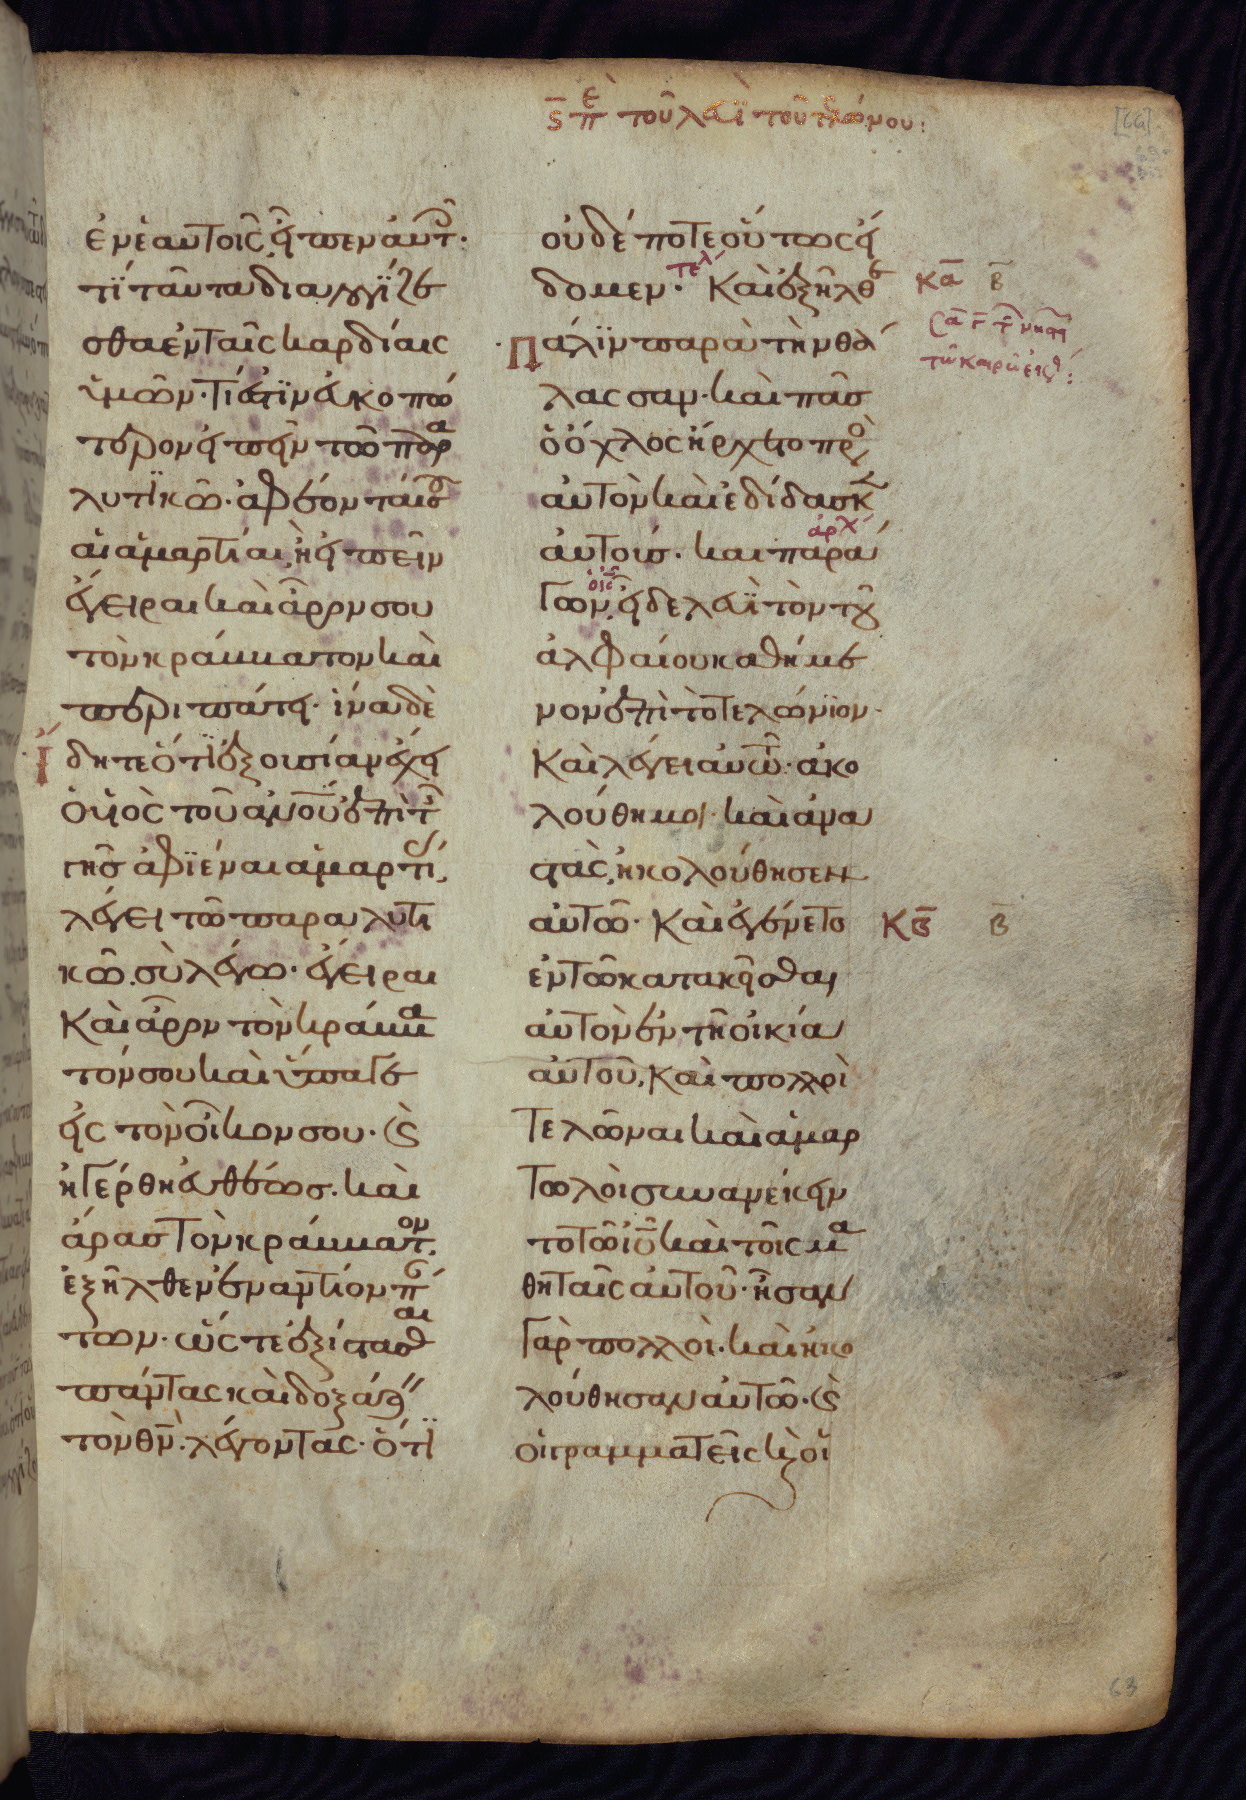 ϛ περὶ τοῦ λευὶ τοῦ τελώνου:
ἐν ἑαυτοῖς, εἶπεν αὐτοῖς·
τί ταῦτα διαλογίζε
σθε ἐν ταῖς καρδίαις
ὑμῶν· τί ἐστιν εὐκοπώ
τερον εἰπεῖν τῷ παρα
λυτικῷ· ἀφέονταί σου
αἱ ἁμαρτίαι, ἢ εἰπεῖν
ἔγειραι καὶ ἆρον σου
τὸν κράββατον καὶ
περιπάτει· ἵνα δὲ
ἴδητε ὅτι ἐξουσίαν ἔχει
ὁ υἱὸς τοῦ ανου ἐπὶ τῆς
γῆς ἀφιέναι ἁμαρτίας,
λέγει τῷ παραλυτι
κῷ. σὺ λέγω· ἔγειραι
καὶ ἆρον τὸν κράββα
τόν σου καὶ ὕπαγε
εἰς τὸν οἶκον σου· καὶ
ἠγέρθη εὐθέως. καὶ
ἄρας τὸν κράββατον,
ἐξῆλθεν ἐναντίον πάν
των· ὥστε ἐξίστασθαι
πάντας καὶ δοξάζειν
τὸν θν. λέγοντας· ὅτι
οὐδέποτε οὕτως εἴ
δομεν· τελ Καὶ ἐξῆλθε
Πάλιν παρὰ τὴν θά
λασσαν· καὶ πᾶς
ὁ ὄχλος ἤρχετο πρὸς
αὐτὸν καὶ ἐδίδασκεν
αὐτούς. καὶ παρά ἀρχ
γων, εἶδε λευὶ τὸν τοῦ
ἀλφαίου καθήμε
νον ἐπὶ τὸ τελώνιον·
Καὶ λέγει αὐτῷ· ἀκο
λούθει μοι· καὶ ἀνα
στὰς, ἠκολούθησεν
αὐτῷ· Καὶ ἐγένετο
ἐν τῷ κατακεῖσθαι
αὐτὸν ἐν τῇ οἰκίᾳ
αὐτοῦ, καὶ πολλοὶ
τελῶναι καὶ ἁμαρ
τωλοὶ συνανέκειν
το τῷ ιυ καὶ τοῖς μα
θηταῖς αὐτοῦ· ἦσαν
γὰρ πολλοὶ. καὶ ἠκο
λούθησαν αὐτῷ· καὶ
οἱ γραμματεῖς καὶ οἱ
κα β
κβ β
63